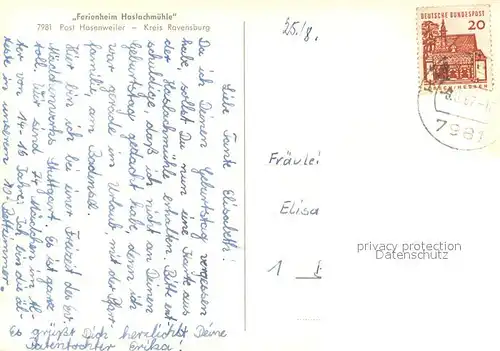 „Ferienheim Haslachmühle"
7981 Post Hasenweiler — Kreis Ravensburg
Liebe Tante Elisabeth!
Da ich Deinen Geburtstag vergessen
habe, sollst Du nun eine Karte aus
der Haslachmühle erhalten. Bitte ent-
schuldige, daß ich nicht an Deinen
Geburtstag gedacht habe, denn ich
war gerade im Urlaub mit der Pfarr-
familie, am Bodensee.
Hier bin ich bei einer Freizeit des Ev.
Mädchenwerks Stuttgart. Es ist ganz
toll. Wir sind 74 Mädchen im Al-
ter von 14-16 Jahre. Ich bin die äl-
teste in unserem 10 Bettzimmer.
Es grüßt Dich herzlichst Deine
Patentochter Erika!
25./8.
DEUTSCHE BUNDESPOST
20
LORSCH/HESSEN
7981
Fräulei
Elisa
1
privacy protection
Datenschutz